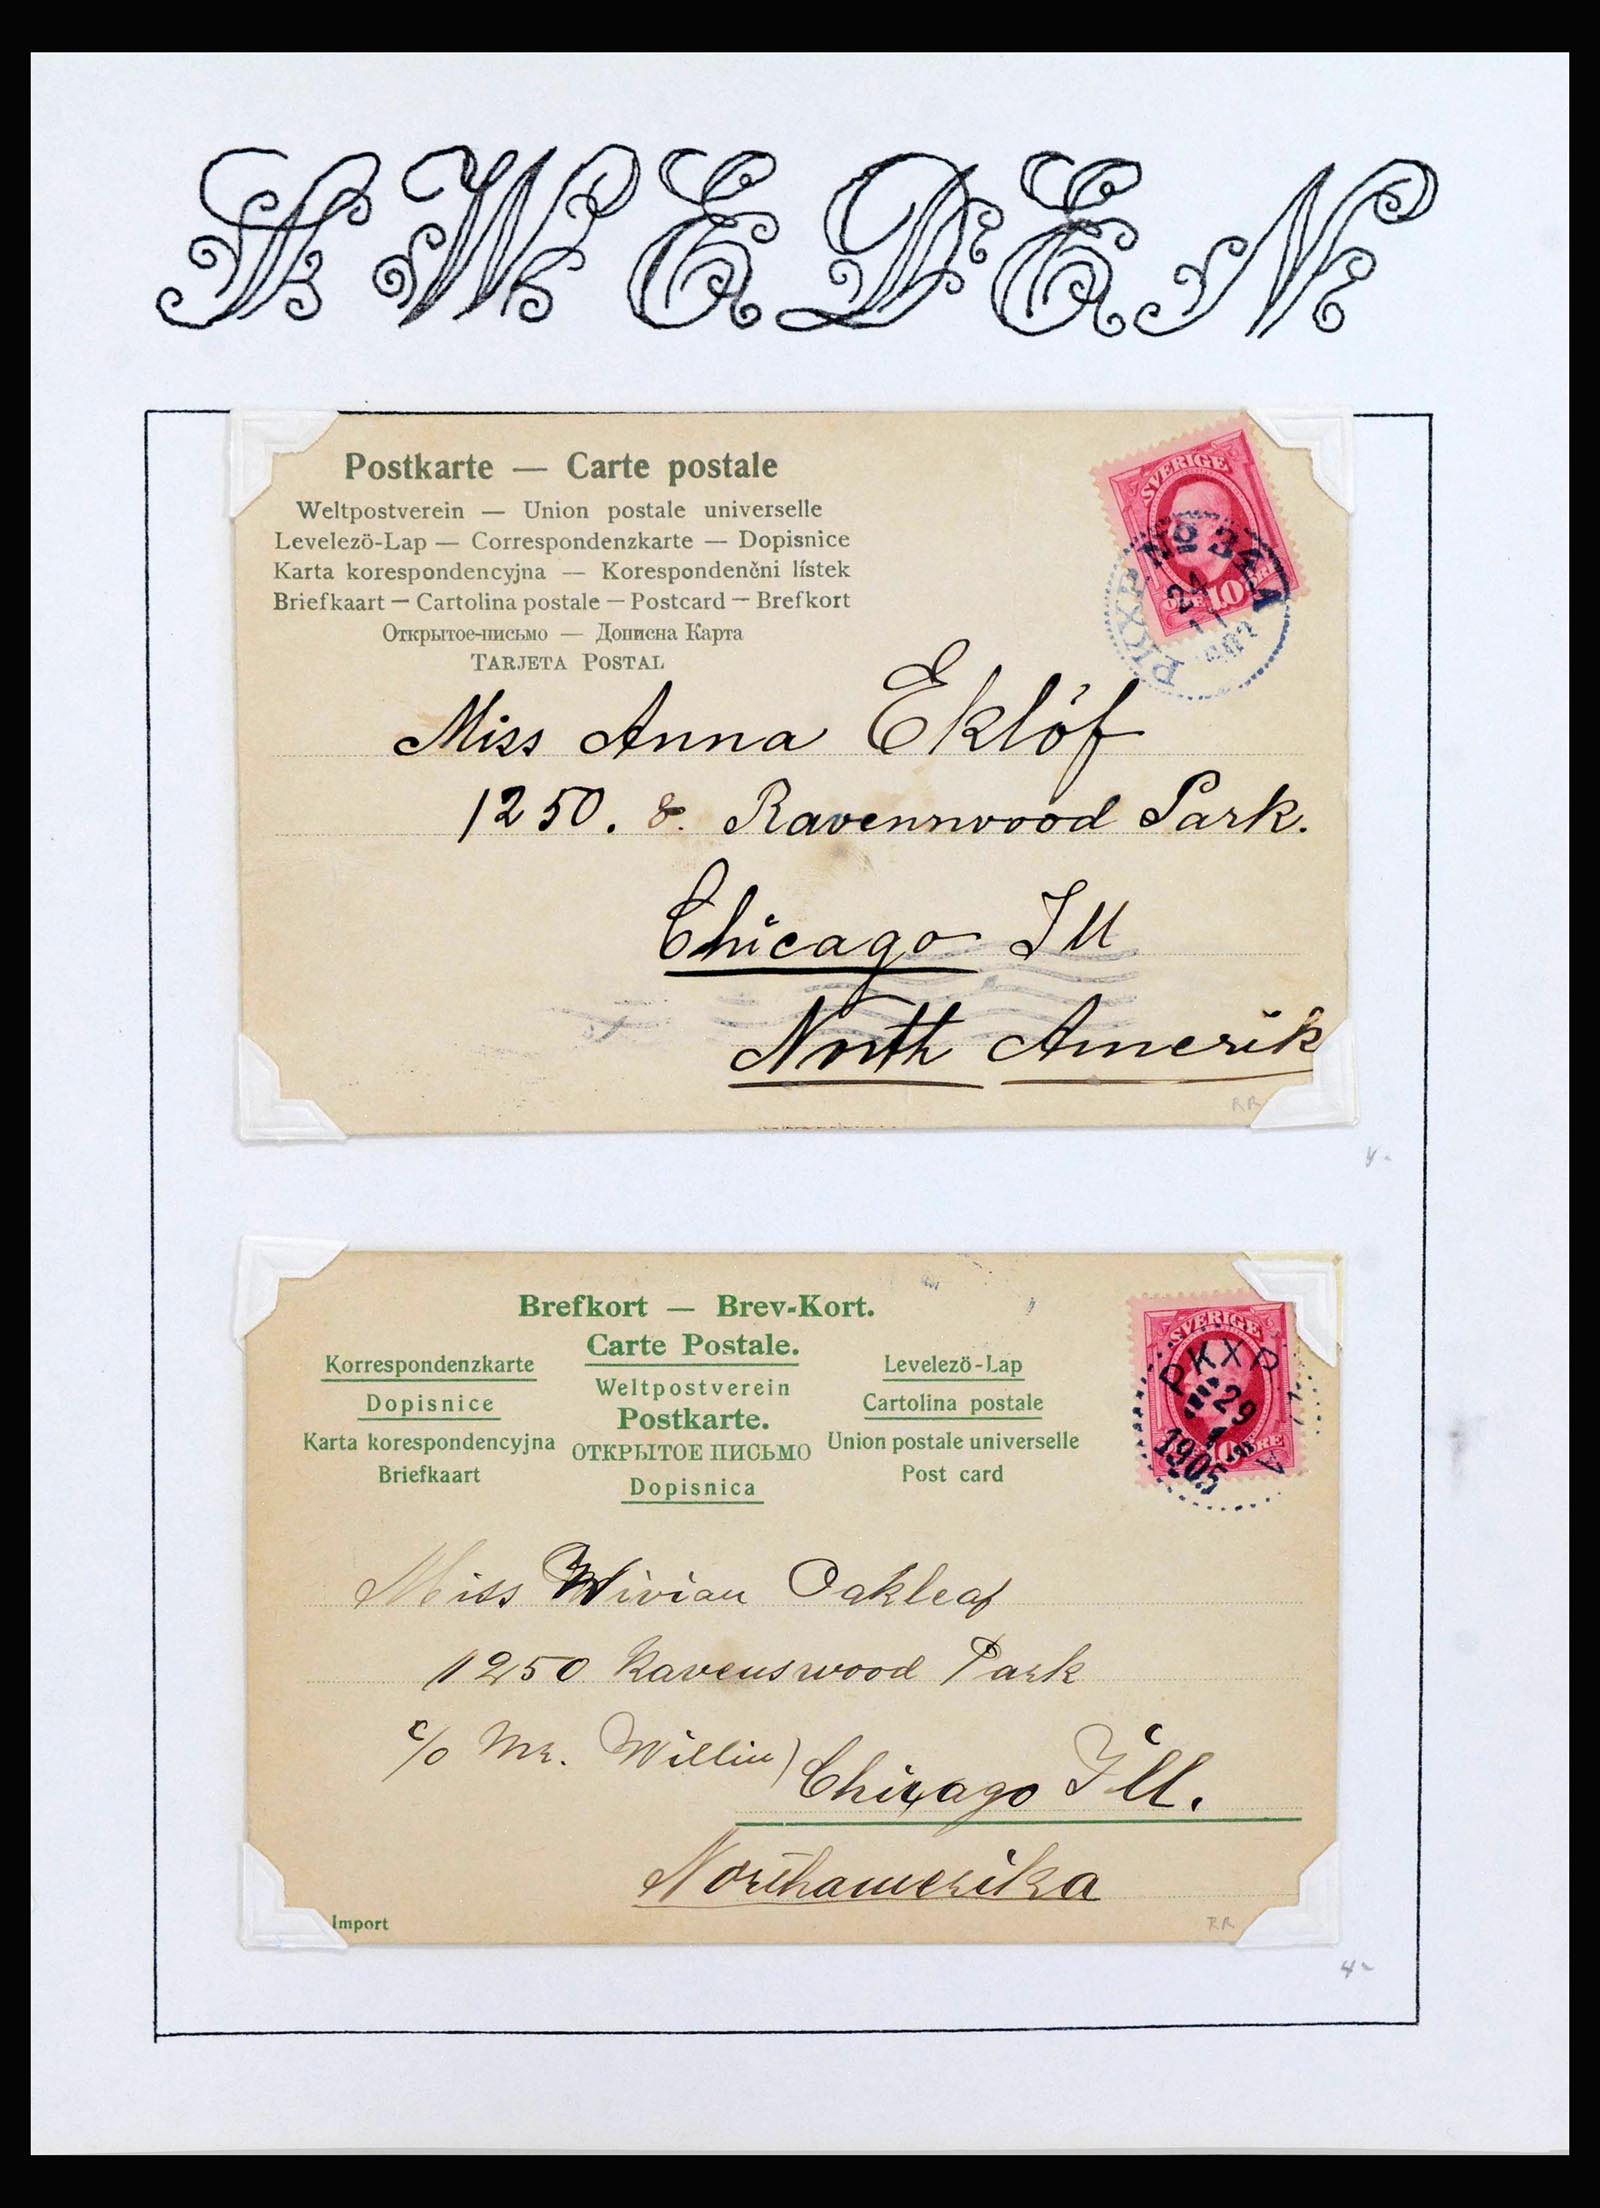 SWEDEN
Postkarte — Carte postale
Weltpostverein — Union postale universelle
Levelezö-Lap — Correspondenzkarte — Dopisnice
Karta korespondencyjna — Korespondenčni lístek
Briefkaart — Cartolina postale — Postcard — Brefkort
Открытое-письмо — Дописна Карта
TARJETA POSTAL
SVERIGE
10
PKXP No 3
24
1
Miss Anna Eklöf
1250. 8. Ravennwood Park.
Chicago Ill
North Amerik
RR
4-
Brefkort — Brev-Kort.
Carte Postale.
Korrespondenzkarte
Weltpostverein
Levelezö-Lap
Dopisnice
Postkarte.
Cartolina postale
Karta korespondencyjna
ОТКРЫТОЕ ПИСЬМО
Union postale universelle
Briefkaart
Dopisnica
Post card
SVERIGE
10
PKXP
29
1
1905
A
Miss Wivian Oakleaf
1250 Ravenswood Park
c/o Mr. Willin)
Chicago Ill.
Northamerika
Import
RR
4-